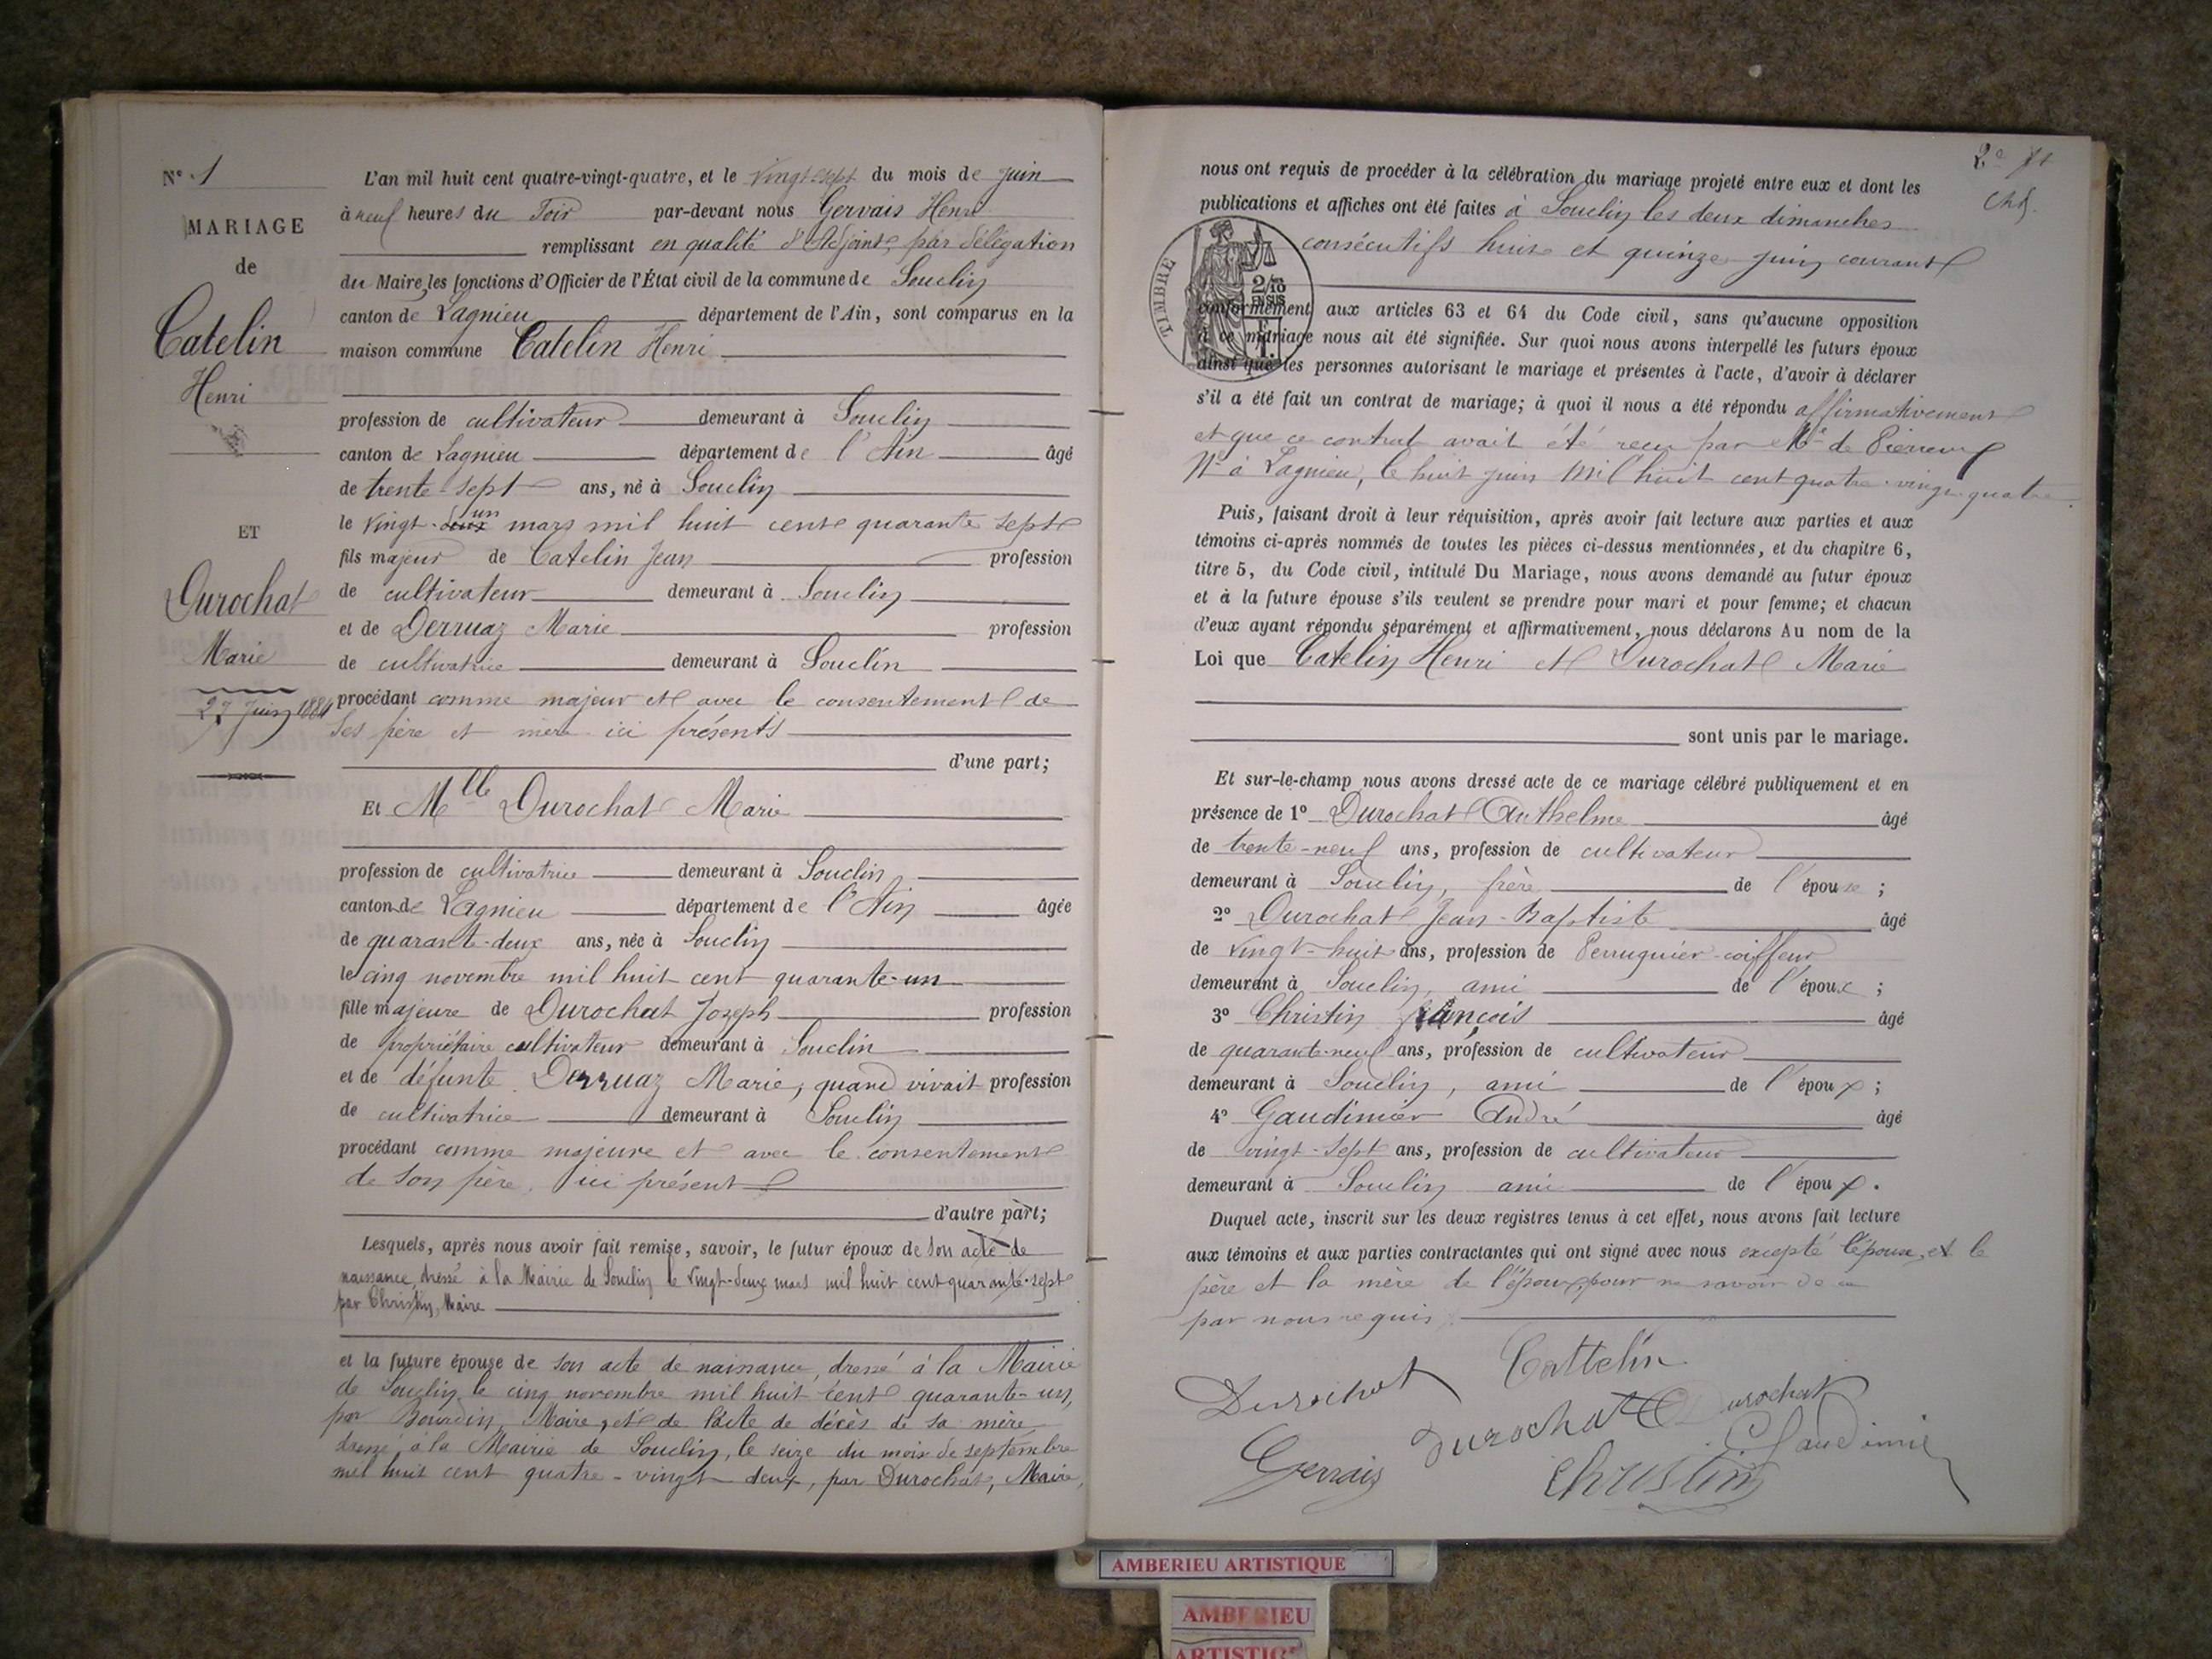 N° 1
MARIAGE
de
Catelin
Henri
ET
Durochat
Marie
27 Juin 1884
L'an mil huit cent quatre-vingt-quatre, et le vingt-sept du mois de juin
à neuf heures du soir par-devant nous Gervais Henri
remplissant en qualité d'Adjoint, par délégation
du Maire, les fonctions d'Officier de l'État civil de la commune de Souclin
canton de Lagnieu département de l'Ain, sont comparus en la
maison commune Catelin Henri
profession de cultivateur demeurant à Souclin
canton de Lagnieu département de l'Ain âgé
de trente-sept ans, né à Souclin
le vingt-deux un mars mil huit cent quarante sept
fils majeur de Catelin Jean profession
de cultivateur demeurant à Souclin
et de Derruaz Marie profession
de cultivatrice demeurant à Souclin
procédant comme majeur et avec le consentement de
ses père et mère ici présents
d'une part;
Et Mlle Durochat Marie
profession de cultivatrice demeurant à Souclin
canton de Lagnieu département de l'Ain âgée
de quarante-deux ans, née à Souclin
le cinq novembre mil huit cent quarante-un
fille majeure de Durochat Joseph profession
de propriétaire cultivateur demeurant à Souclin
et de défunte Derruaz Marie, quand vivait profession
de cultivatrice demeurant à Souclin
procédant comme majeure et avec le consentement
de son père ici présent
d'autre part;
Lesquels, après nous avoir fait remise, savoir, le futur époux de son acte de
naissance, dressé à la Mairie de Souclin le vingt-deux mars mil huit cent quarante-sept
par Christin, Maire
et la future épouse de son acte de naissance, dressé à la Mairie
de Souclin le cinq novembre mil huit cent quarante-un,
par Bourdin, Maire, et de l'acte de décès de sa mère
dressé à la Mairie de Souclin, le seize du mois de septembre
mil huit cent quatre-vingt deux, par Durochat, Maire,
2e
nous ont requis de procéder à la célébration du mariage projeté entre eux et dont les
publications et affiches ont été faites à Souclin les deux dimanches
consécutifs huit et quinze juin courant
TIMBRE
2/10
EN SUS
conformément aux articles 63 et 64 du Code civil, sans qu'aucune opposition
à ce mariage nous ait été signifiée. Sur quoi nous avons interpellé les futurs époux
ainsi que les personnes autorisant le mariage et présentes à l'acte, d'avoir à déclarer
s'il a été fait un contrat de mariage; à quoi il nous a été répondu affirmativement
et que ce contrat avait été reçu par Me de
Nre à Lagnieu, le huit juin mil huit cent quatre-vingt-quatre
Puis, faisant droit à leur réquisition, après avoir fait lecture aux parties et aux
témoins ci-après nommés de toutes les pièces ci-dessus mentionnées, et du chapitre 6,
titre 5, du Code civil, intitulé Du Mariage, nous avons demandé au futur époux
et à la future épouse s'ils veulent se prendre pour mari et pour femme; et chacun
d'eux ayant répondu séparément et affirmativement, nous déclarons Au nom de la
Loi que Catelin Henri et Durochat Marie
sont unis par le mariage.
Et sur-le-champ nous avons dressé acte de ce mariage célébré publiquement et en
présence de 1° Durochat Anthelme âgé
de trente-neuf ans, profession de cultivateur
demeurant à Souclin, frère de l'épouse;
2° Durochat Jean-Baptiste âgé
de vingt-huit ans, profession de Perruquier-coiffeur
demeurant à Souclin, ami de l'époux;
3° Christin François âgé
de quarante-neuf ans, profession de cultivateur
demeurant à Souclin, ami de l'époux;
4° Gaudimier André âgé
de vingt-sept ans, profession de cultivateur
demeurant à Souclin ami de l'époux.
Duquel acte, inscrit sur les deux registres tenus à cet effet, nous avons fait lecture
aux témoins et aux parties contractantes qui ont signé avec nous excepté l'épouse, et le
père et la mère de l'époux, pour ne savoir de ce
par nous requis
Cattelin
Durochat
Durochat
Durochat
Gervais
Gaudimié
Christin
AMBERIEU ARTISTIQUE
AMBERIEU
ARTISTIQUE